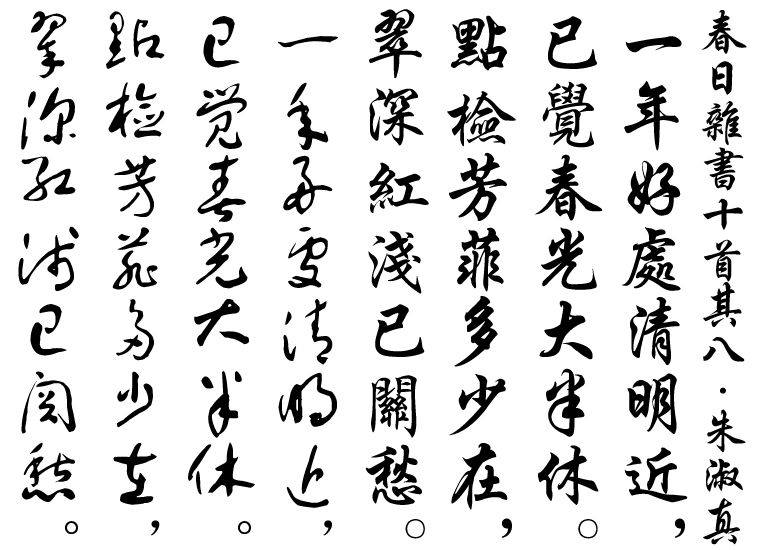 春日雜書十首其八·朱淑真
一年好處清明近，
已覺春光大半休。
點檢芳菲多少在，
翠深紅淺已關愁。
一年好處清明近，
已覺春光大半休。
點檢芳菲多少在，
翠深紅淺已關愁。